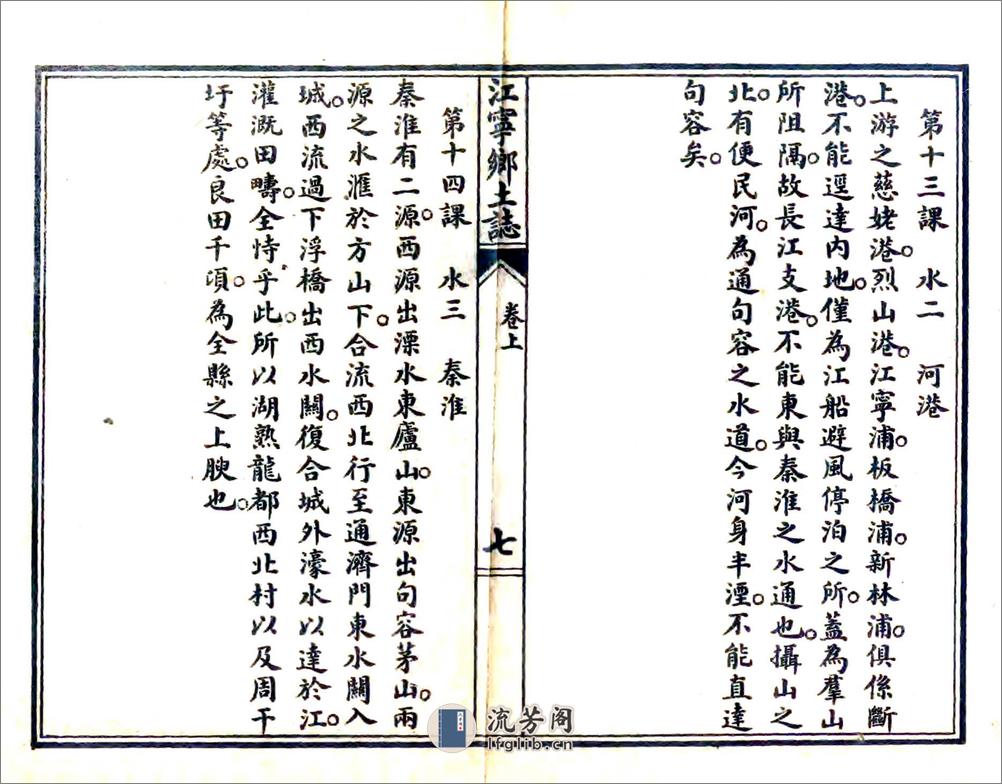 第十三課　水二　河港
上游之慈姥港。烈山港。江寧浦。板橋浦。新林浦。俱係斷
港。不能逕達內地。僅為江船避風停泊之所。蓋為羣山
所阻隔。故長江支港。不能東與秦淮之水通也。攝山之
北。有便民河。為通句容之水道。今河身半湮。不能直達
句容矣。
江寧鄉土誌
卷上
七
第十四課　水三　秦淮
秦淮有二源。西源出溧水東廬山。東源出句容茅山。兩
源之水滙於方山下。合流西北行至通濟門東水關入
城。西流過下浮橋出西水關。復合城外濠水以達於江。
灌溉田疇。全恃乎此。所以湖熟龍都西北村以及周干
圩等處。良田千頃。為全縣之上腴也。
流芳阁
lfglib.cn